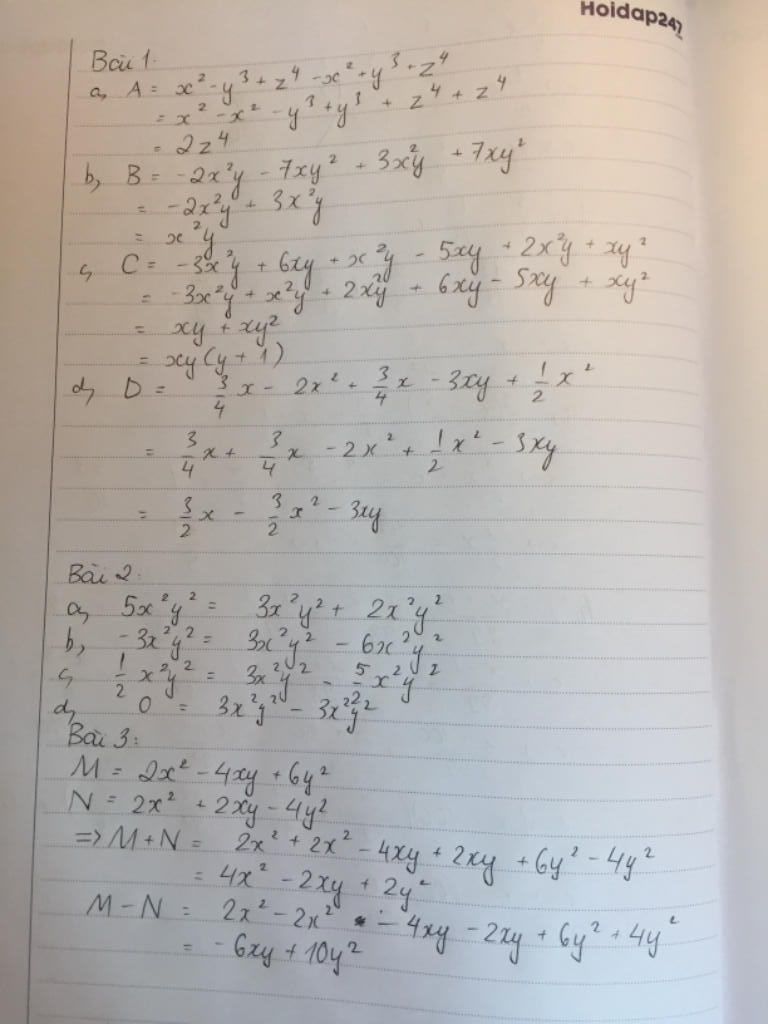 Hoidap247
Bài 1.
a, A = x² - y³ + z⁴ - x² + y³ + z⁴
= x² - x² - y³ + y³ + z⁴ + z⁴
= 2z⁴
b, B = -2x²y - 7xy² + 3x²y + 7xy²
= -2x²y + 3x²y
= x²y
c, C = -3x²y + 6xy + x²y - 5xy + 2x²y + xy²
= -3x²y + x²y + 2x²y + 6xy - 5xy + xy²
= xy + xy²
= xy(y + 1)
d, D = 3/4 x - 2x² + 3/4 x - 3xy + 1/2 x²
= 3/4 x + 3/4 x - 2x² + 1/2 x² - 3xy
= 3/2 x - 3/2 x² - 3xy
Bài 2:
a, 5x²y² = 3x²y² + 2x²y²
b, -3x²y² = 3x²y² - 6x²y²
c, 1/2 x²y² = 3x²y² - 5/2 x²y²
d, 0 = 3x²y² - 3x²y²
Bài 3:
M = 2x² - 4xy + 6y²
N = 2x² + 2xy - 4y²
=> M + N = 2x² + 2x² - 4xy + 2xy + 6y² - 4y²
= 4x² - 2xy + 2y²
M - N = 2x² - 2x² - 4xy - 2xy + 6y² + 4y²
= -6xy + 10y²